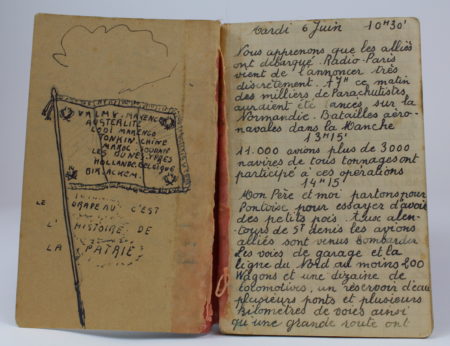 VALMY. MARENGO
AUSTERLITZ
LODI MARENGO
TONKIN. CHINE
MAROC.
LES DUNES. YPRES
HOLLANDE. BELGIQUE
BIR. ACKEM.
LE DRAPEAU C'EST
L'HISTOIRE DE
LA PATRIE
Mardi 6 Juin 10H30'
Nous apprenons que les alliés
ont débarqué. Radio-Paris
vient de l'annoncer très
discrètement. A 7H ce matin
des milliers de Parachutistes
auraient été lancés sur la
Normandie. Batailles aéro-
navales dans la Manche
13H15'
11.000 avions plus de 3000
navires de tous tonnages ont
participé à ces opérations
14H15'
Mon Père et moi partons pour
Pontoise pour essayer d'avoir
des petits pois. Aux alen-
tours de St denis les avions
alliés sont venus bombarder
Les voies de garage et la
ligne du Nord au moins 200
Wagons et une dizaine de
locomotives, un réservoir d'eau
plusieurs ponts et plusieurs
Kilomètres de voies ainsi
qu'une grande route ont